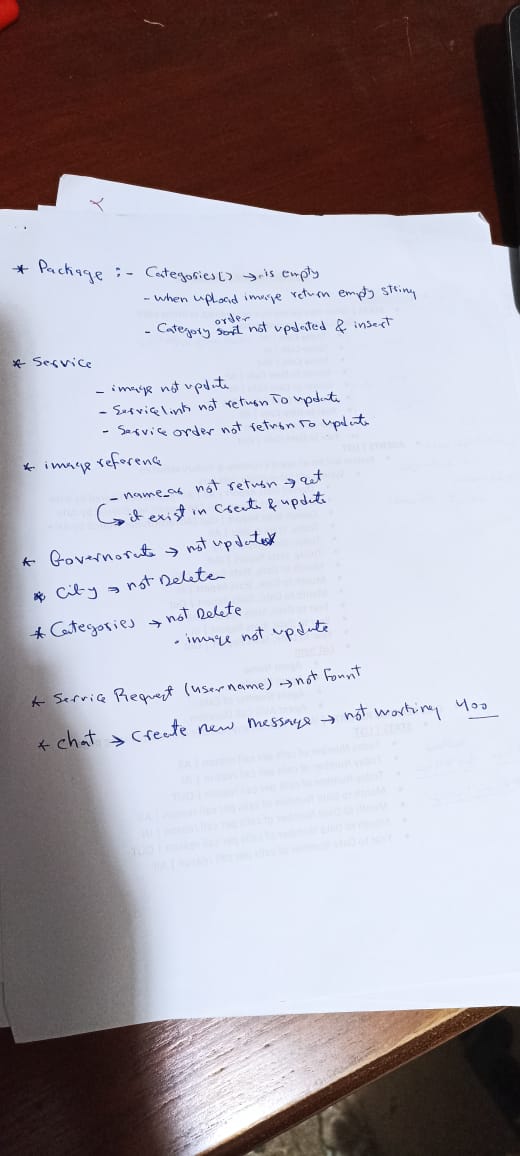 * Package :- Categories[] → is empty
- when upload image return empty string
- Category order not updated & insert
* Service
- image not update
- Service link not return To update
- Service order not return to update
* image referenc
- name_as not return → get
↳ it exist in create & update
* Governorate → not update
* City → not Delete
* Categories → not Delete
. image not update
* Service Request (username) → not Fount
* chat → Create new message → not working 400